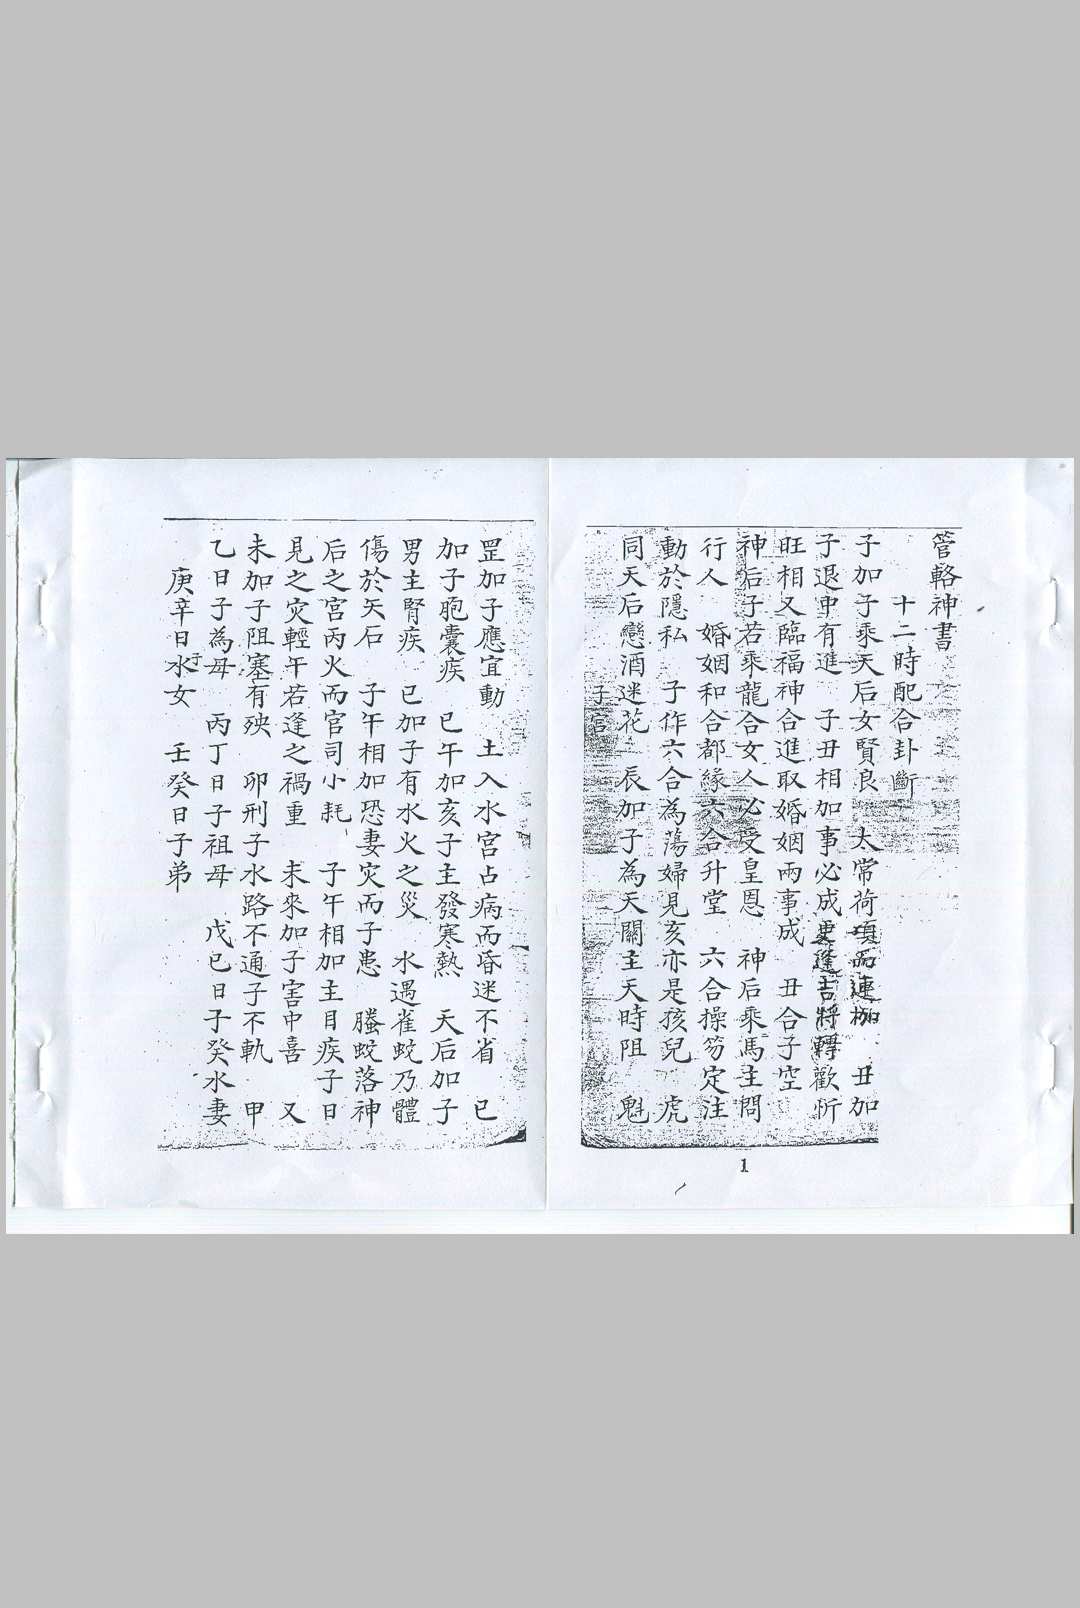 管輅神書
十二時配合卦斷
子加子乘天后女賢良　太常荷項而連枷　丑加
子退中有進　子丑相加事必成更逢吉將轉歡忻
旺相又臨福神合進取婚姻兩事成　丑合子空
神后子若乘龍合女人必受皇恩　神后乘馬主問
行人　婚姻和合都緣六合升堂　六合操笏定注
動於隱私　子作六合為蕩婦見亥亦是孩兒　虎
同天后戀酒迷花　辰加子為天關主天時阻　魁
子宮
罡加子應宜動　土入水宮占病而昏迷不省　已
加子胞囊疾　已午加亥子主發寒熱　天后加子
男主腎疾　已加子有水火之災　水遇雀蛟乃體
傷於矢石　子午相加恐妻灾而子患　螣蛟落神
后之宮丙火而官司小耗　子午相加主目疾子日
見之灾輕午若逢之禍重　未來加子害中喜　又
未加子阻塞有殃　卯刑子水路不通子不軌　甲
乙日子為母　丙丁日子祖母　戊已日子癸水妻
庚辛日子水女　壬癸日子弟
1